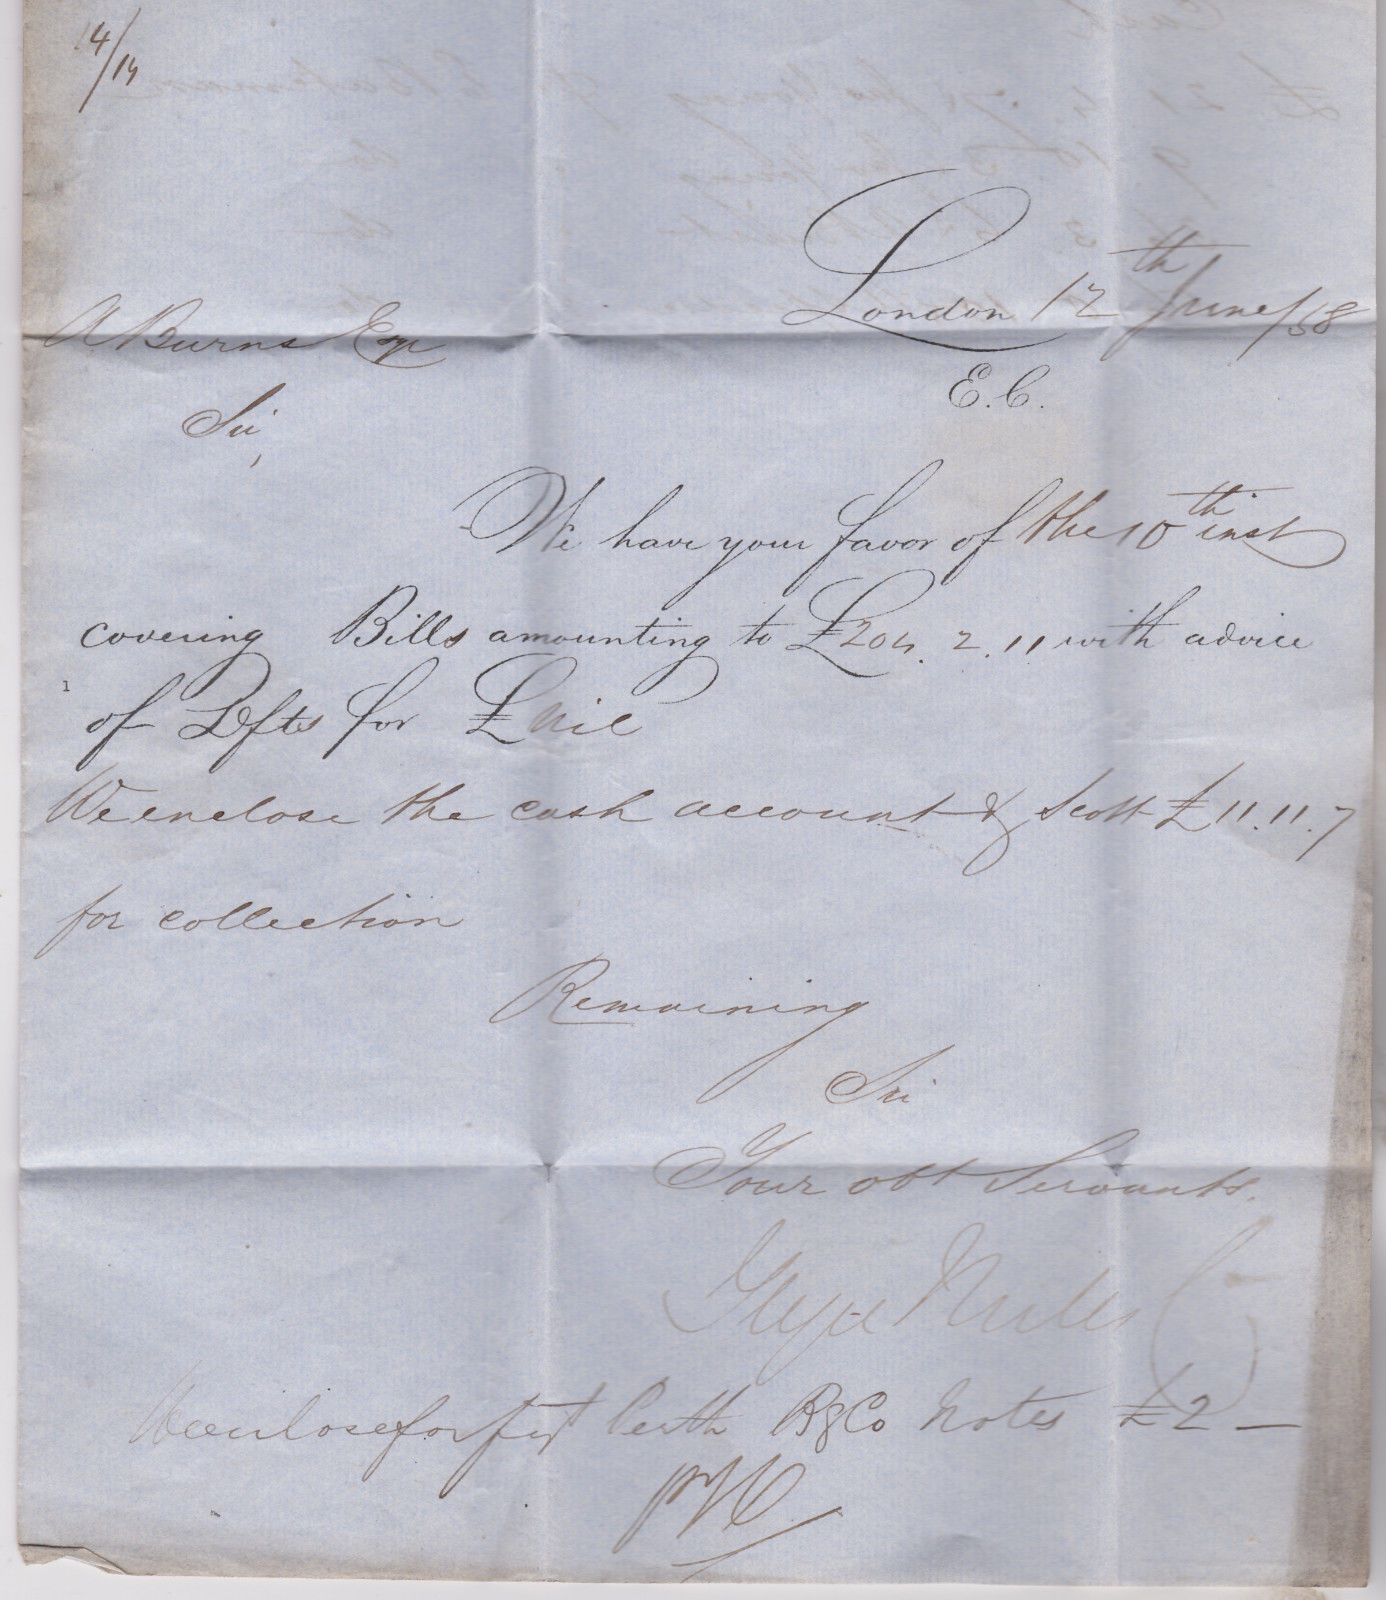 14/14
London 12th June/58
A Burns Esqr
E.C.
Sir,
We have your favor of the 10th inst
covering Bills amounting to £204.2.11 with advice
of Dfts for £ Nil
We enclose the cash account & Scott £11.11.7
for collection
Remaining
Sir
Your obt Servants.
Glyn Mills Co
We enclose for Perth Bg Co Notes £2 —